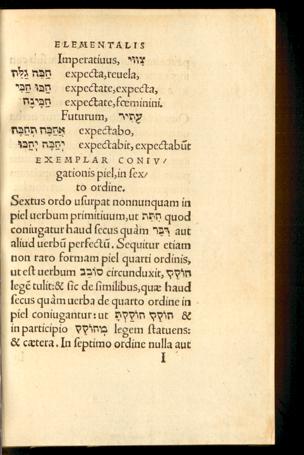 ELEMENTALIS
Imperatiuus, צווי
חַכֵּה גַלֵּה expecta, reuela,
חַכּוּ חַכִּי expectate, expecta,
חַכֶּינָה expectate, fœminini.
Futurum, עָתִיד
אֲחַכֶּה תְחַכֶּה expectabo,
יְחַכֶּה יְחַכּוּ expectabit, expectabūt
EXEMPLAR CONIV/
gationis piel, in sex/
to ordine.
Sextus ordo usurpat nonnunquam in
piel uerbum primitiuum, ut quod
coniugatur haud secus quàm דִּבֵּר aut
aliud uerbū perfectū. Sequitur etiam
non raro formam piel quarti ordinis,
ut est uerbum סוֹבֵב circunduxit, חוֹקֵק
legē tulit: & sic de similibus, quæ haud
secus quàm uerba de quarto ordine in
piel coniugantur: ut חוֹקֵק חוֹקַקְתָּ &
in participio מְחוֹקֵק legem statuens:
& cætera. In septimo ordine nulla aut
I